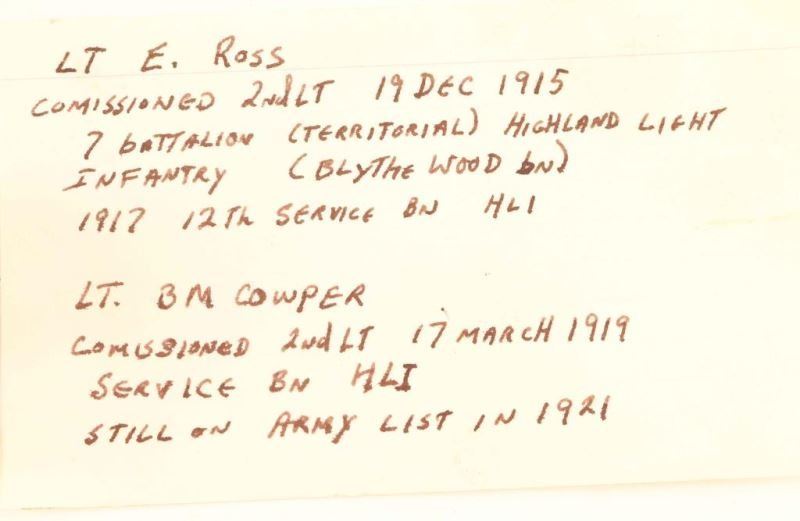 LT E. ROSS
COMISSIONED 2nd LT 19 DEC 1915
7 BATTALION (TERRITORIAL) HIGHLAND LIGHT
INFANTRY (BLYTHE WOOD bn)
1917 12Th SERVICE BN HLI
LT. BM COWPER
COMISSIONED 2nd LT 17 MARCH 1919
SERVICE BN HLI
STILL ON ARMY LIST IN 1921